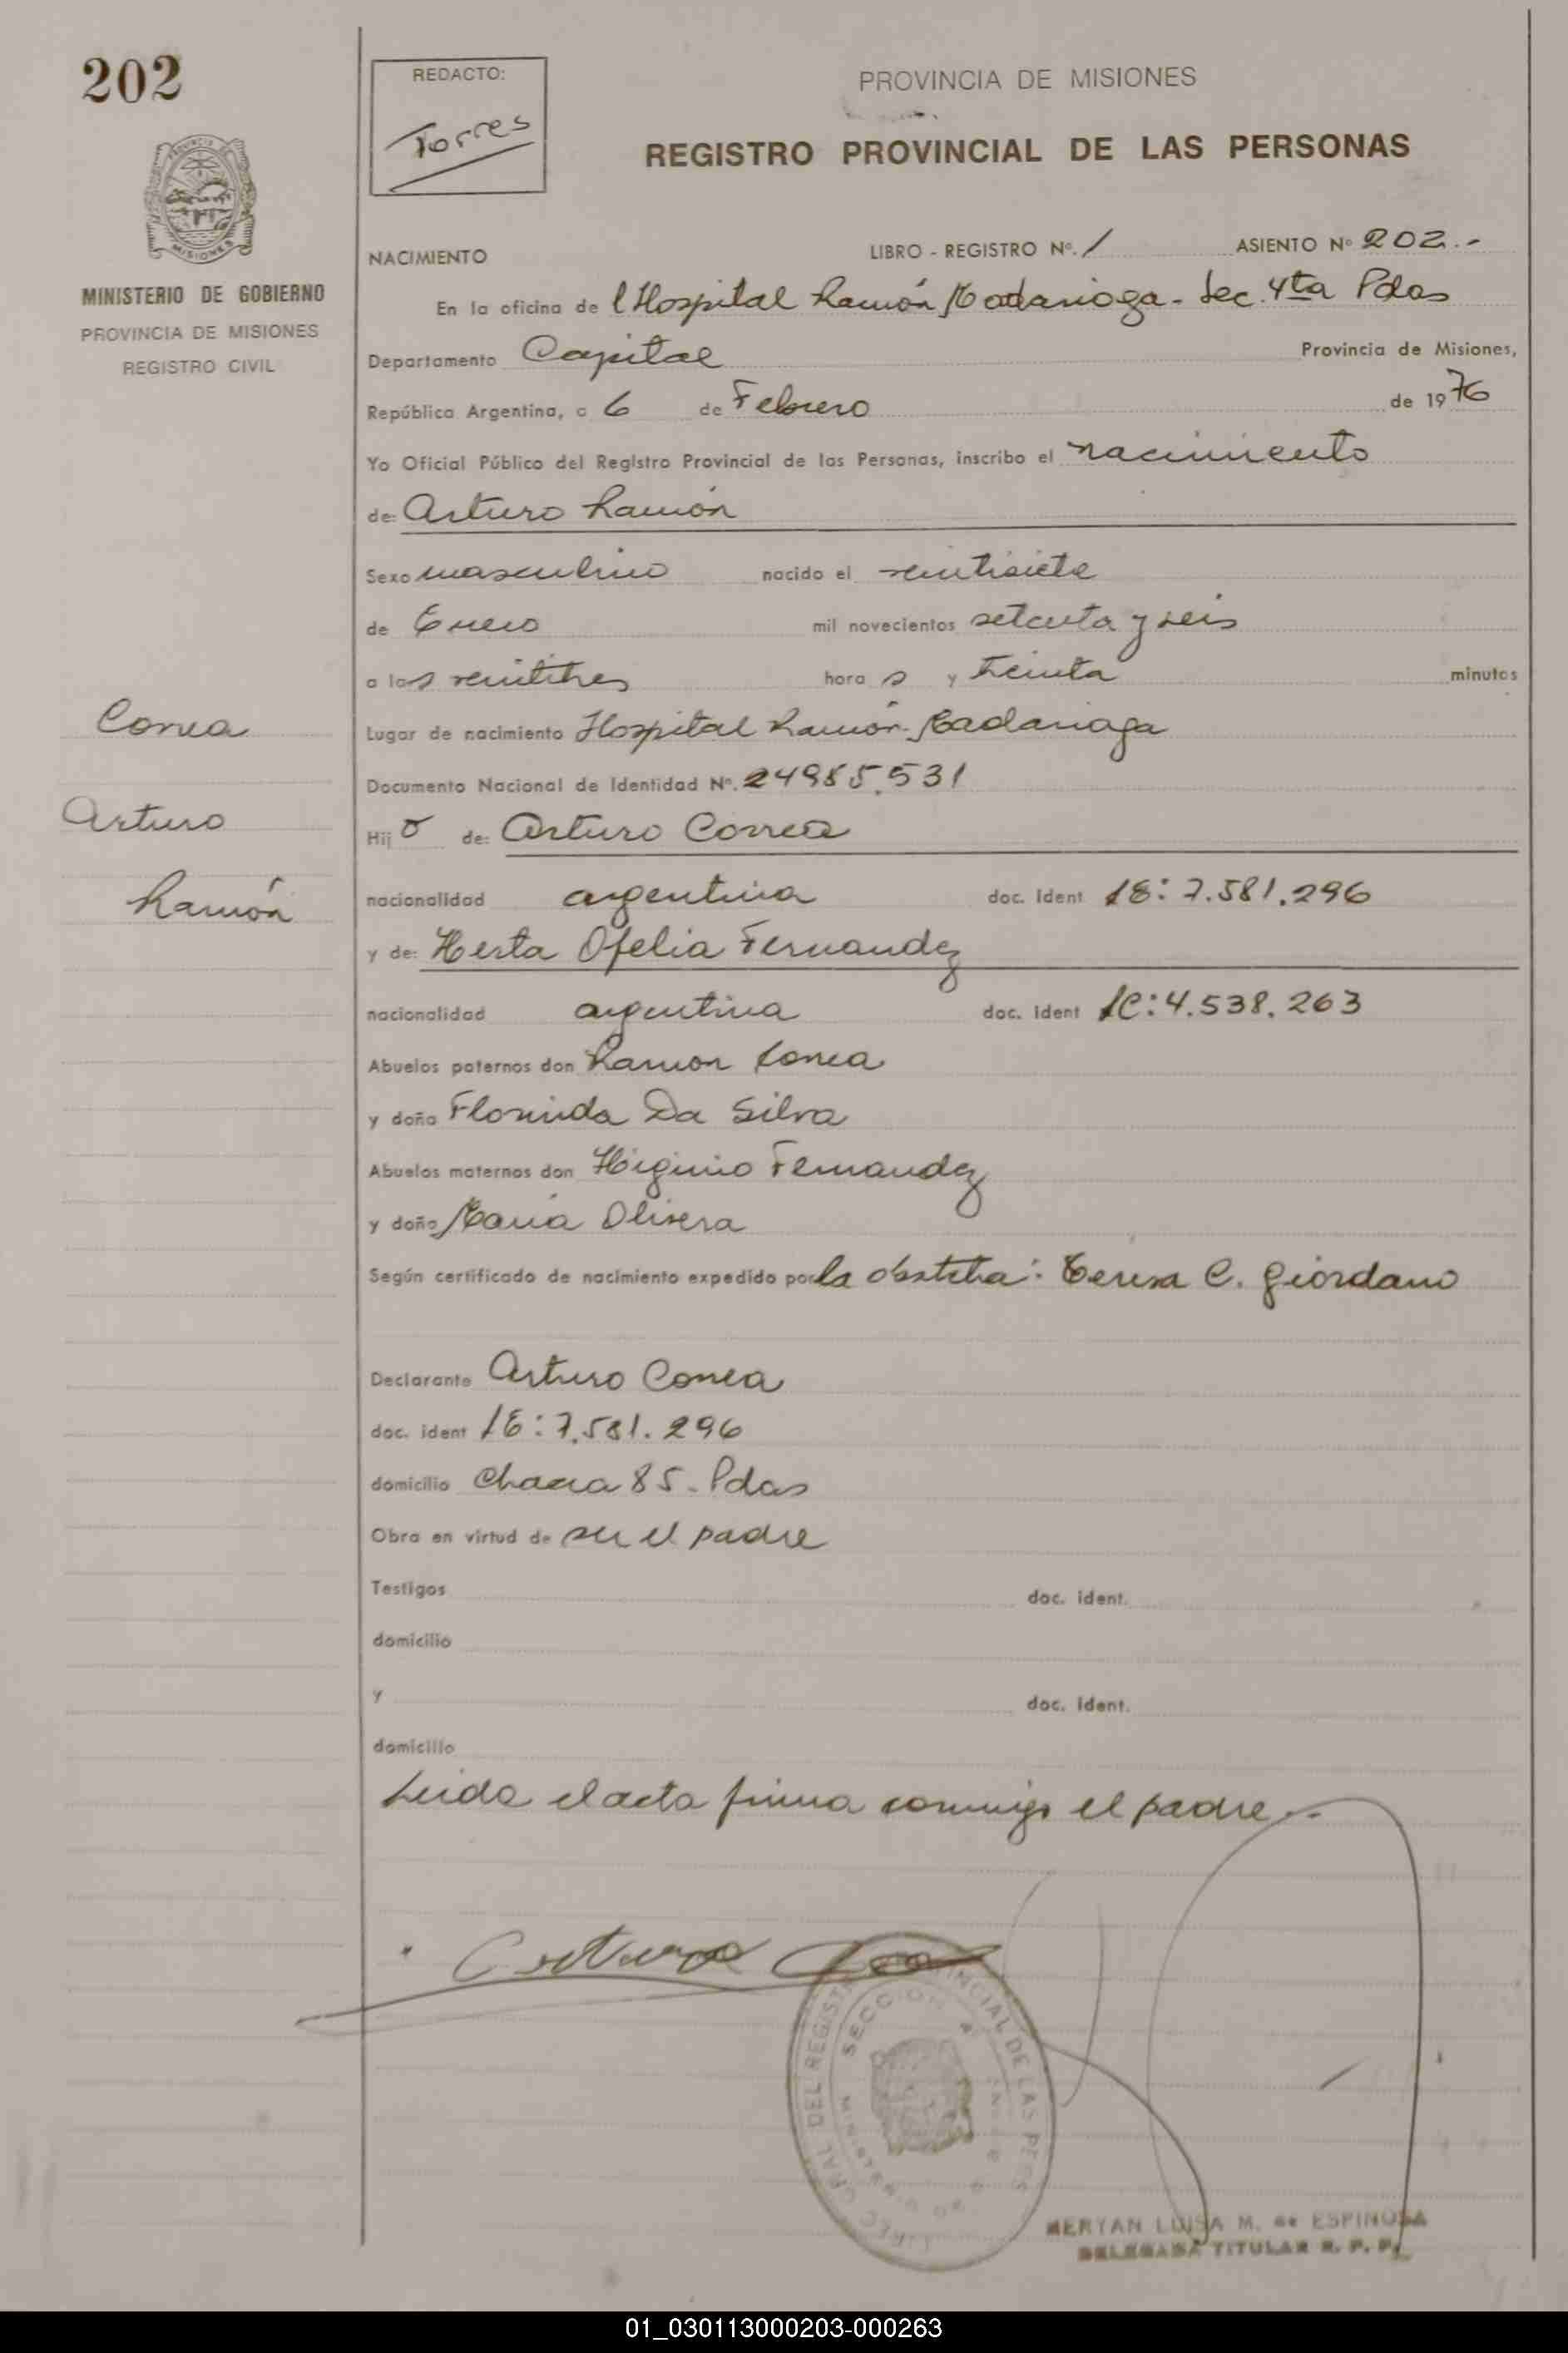 202
REDACTO:
Torres
PROVINCIA DE MISIONES
REGISTRO PROVINCIAL DE LAS PERSONAS
MINISTERIO DE GOBIERNO
PROVINCIA DE MISIONES
REGISTRO CIVIL
NACIMIENTO LIBRO - REGISTRO Nº. 1 ASIENTO Nº 202.-
En la oficina de l Hospital Ramón Madariaga - Sec. 4ta Pdas
Departamento Capital Provincia de Misiones,
República Argentina, a 6 de Febrero de 1976
Yo Oficial Público del Registro Provincial de las Personas, inscribo el nacimiento
de: Arturo Ramón
Sexo masculino nacido el veintisiete
de Enero mil novecientos setenta y seis
a las veintitres hora s y treinta minutos
Lugar de nacimiento Hospital Ramón Madariaga
Documento Nacional de Identidad Nº. 24985.531
Hij o de: Arturo Correa
nacionalidad argentina doc. ident LE: 7.581.296
y de: Herta Ofelia Fernandez
nacionalidad argentina doc. ident LC: 4.538.263
Abuelos paternos don Ramon Correa
y doña Florinda Da Silva
Abuelos maternos don Higinio Fernandez
y doña María Olivera
Según certificado de nacimiento expedido por la obstetra: Teresa C. Giordano
Declarante Arturo Correa
doc. ident LE: 7.581.296
domicilio Chacra 85 - Pdas
Obra en virtud de ser el padre
Testigos doc. ident.
domicilio
y doc. ident.
domicilio
Leida el acta firma conmigo el padre.-
Correa
Arturo
Ramón
Arturo
SECCION 4
MERYAN LUISA M. de ESPINOSA
DELEGADA TITULAR R. P. P.
01_030113000203-000263